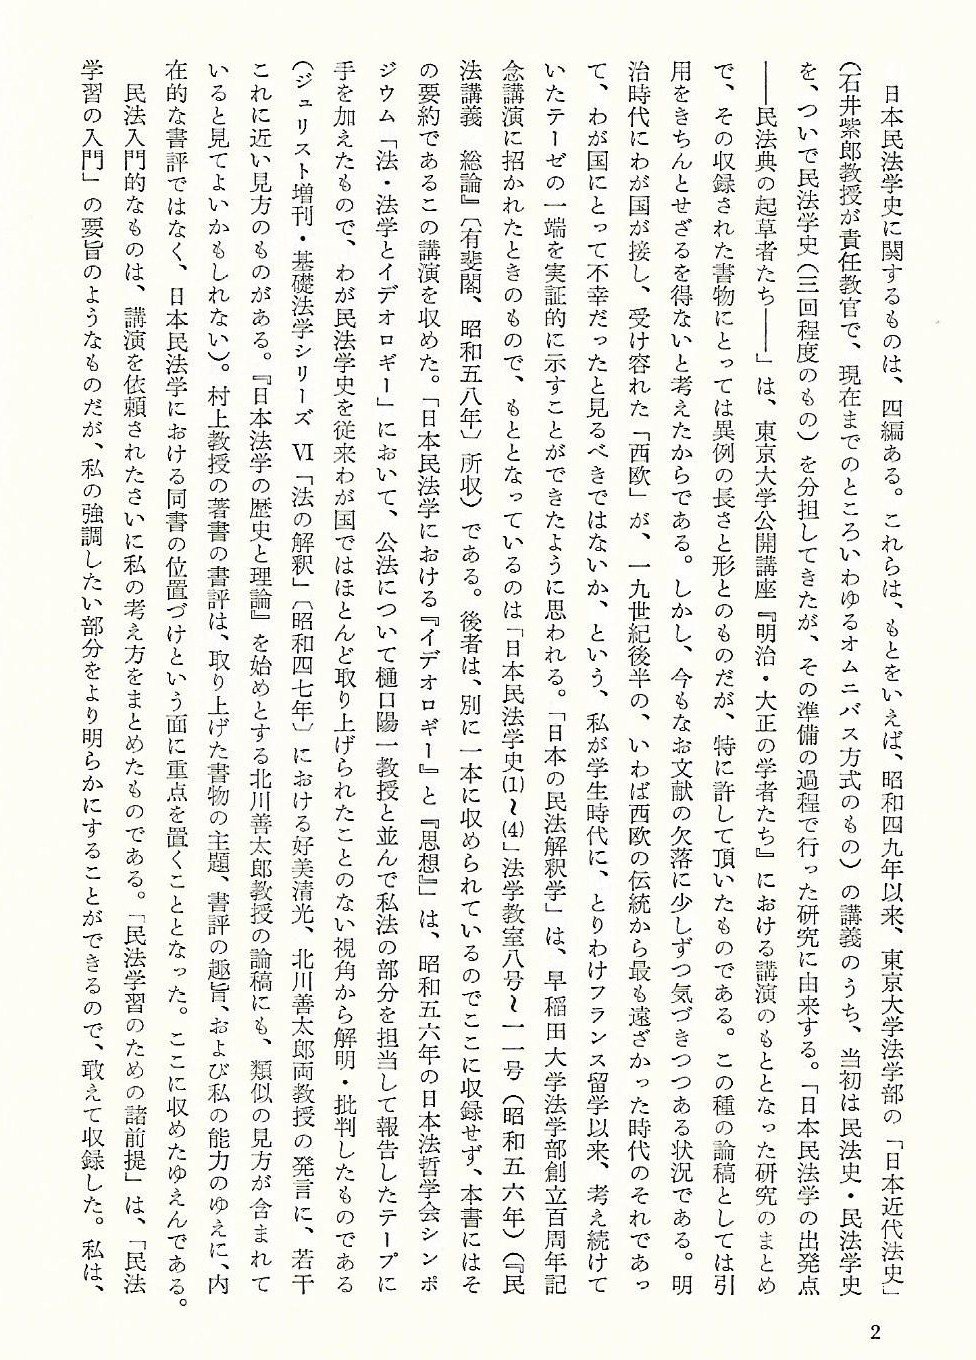 日本民法学史に関するものは、四編ある。これらは、もとをいえば、昭和四九年以来、東京大学法学部の「日本近代法史」
(石井紫郎教授が責任教官で、現在までのところいわゆるオムニバス方式のもの)の講義のうち、当初は民法史・民法学史
を、ついで民法学史(三回程度のもの)を分担してきたが、その準備の過程で行った研究に由来する。「日本民法学の出発点
――民法典の起草者たち――」は、東京大学公開講座『明治・大正の学者たち』における講演のもととなった研究のまとめ
で、その収録された書物にとっては異例の長さと形とのものだが、特に許して頂いたものである。この種の論稿としては引
用をきちんとせざるを得ないと考えたからである。しかし、今もなお文献の欠落に少しずつ気づきつつある状況である。明
治時代にわが国が接し、受け容れた「西欧」が、一九世紀後半の、いわば西欧の伝統から最も遠ざかった時代のそれであっ
て、わが国にとって不幸だったと見るべきではないか、という、私が学生時代に、とりわけフランス留学以来、考え続けて
いたテーゼの一端を実証的に示すことができたように思われる。「日本の民法解釈学」は、早稲田大学法学部創立百周年記
念講演に招かれたときのもので、もととなっているのは「日本民法学史(1)～(4)」法学教室八号～一一号(昭和五六年)(『民
法講義 総論』〔有斐閣、昭和五八年〕所収)である。後者は、別に一本に収められているのでここに収録せず、本書にはそ
の要約であるこの講演を収めた。「日本民法学における『イデオロギー』と『思想』」は、昭和五六年の日本法哲学会シンポ
ジウム「法・法学とイデオロギー」において、公法について樋口陽一教授と並んで私法の部分を担当して報告したテープに
手を加えたもので、わが民法学史を従来わが国ではほとんど取り上げられたことのない視角から解明・批判したものである
(ジュリスト増刊・基礎法学シリーズ Ⅵ「法の解釈」〔昭和四七年〕における好美清光、北川善太郎両教授の発言に、若干
これに近い見方のものがある。『日本法学の歴史と理論』を始めとする北川善太郎教授の論稿にも、類似の見方が含まれて
いると見てよいかもしれない)。村上教授の著書の書評は、取り上げた書物の主題、書評の趣旨、および私の能力のゆえに、内
在的な書評ではなく、日本民法学における同書の位置づけという面に重点を置くこととなった。ここに収めたゆえんである。
民法入門的なものは、講演を依頼されたさいに私の考え方をまとめたものである。「民法学習のための諸前提」は、「民法
学習の入門」の要旨のようなものだが、私の強調したい部分をより明らかにすることができるので、敢えて収録した。私は、
2